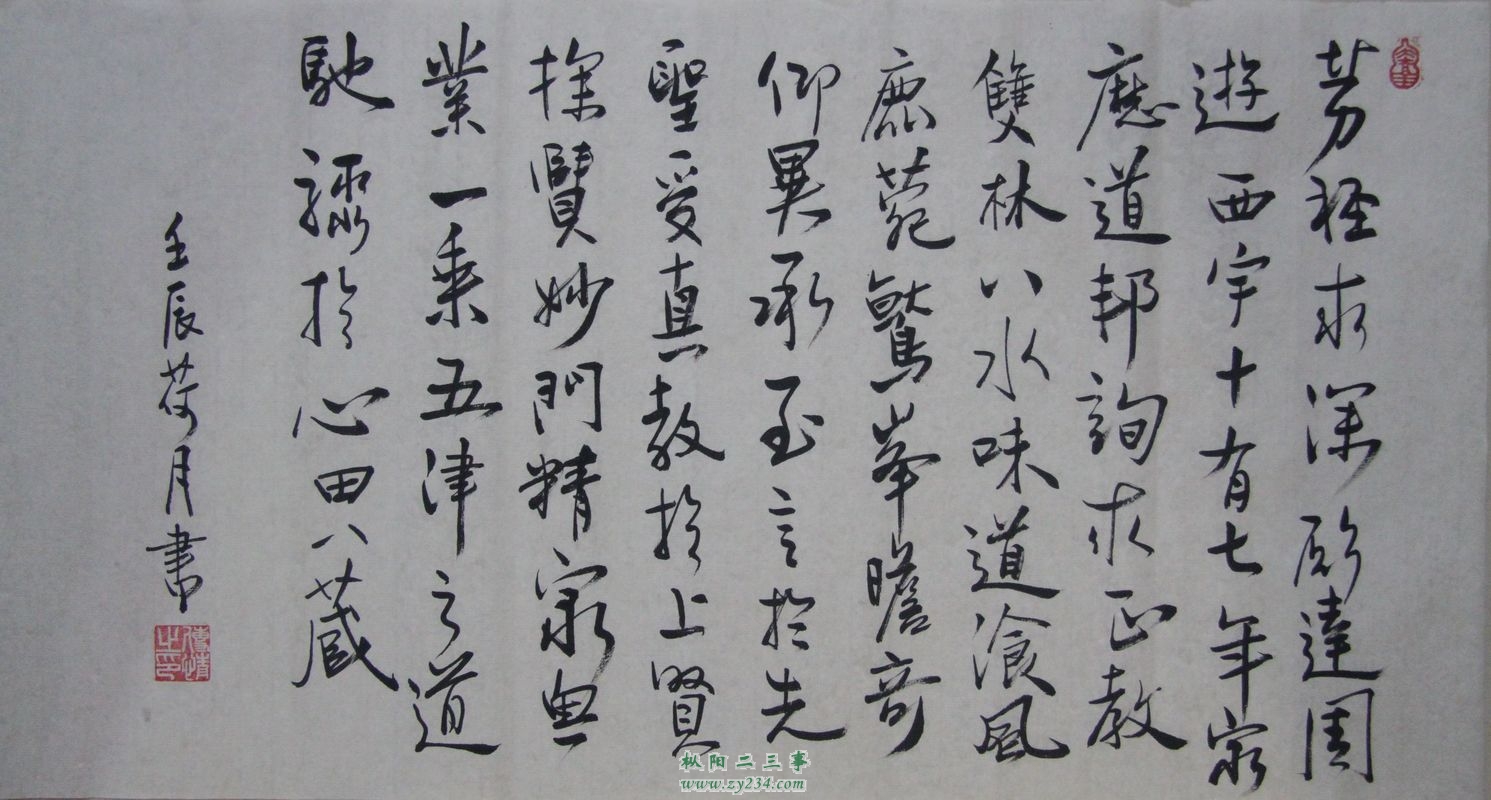 劳軽求深願達周
遊西宇十有七年窮
歷道邦詢求正教
雙林八水味道湌風
鹿菀鷲峯瞻奇
仰異承至言於先
聖受真教於上賢
探賾妙門精窮奧
業一乘五津之道
馳驟於心田八藏
壬辰荷月書
枞阳二三事
www.zy234.com